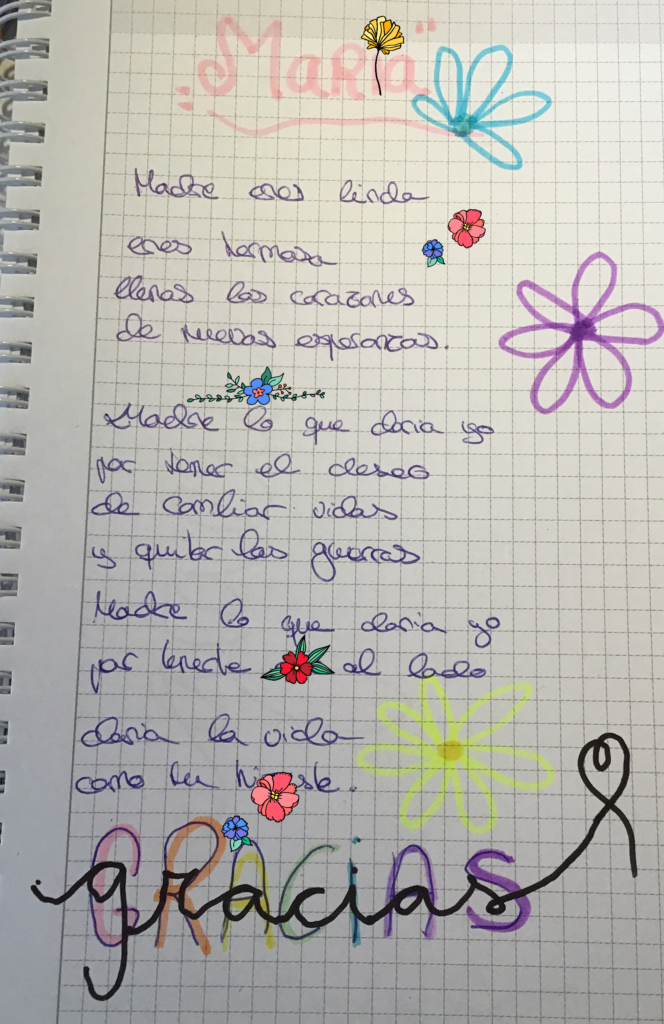 "María"
Madre eres linda
eres hermosa
llenas los corazones
de nuevas esperanzas.
Madre lo que daria yo
por tener el deseo
de cambiar vidas
y quitar las guerras
Madre lo que daria yo
por tenerte al lado
daria la vida
como tu hiciste.
GRACIAS
gracias